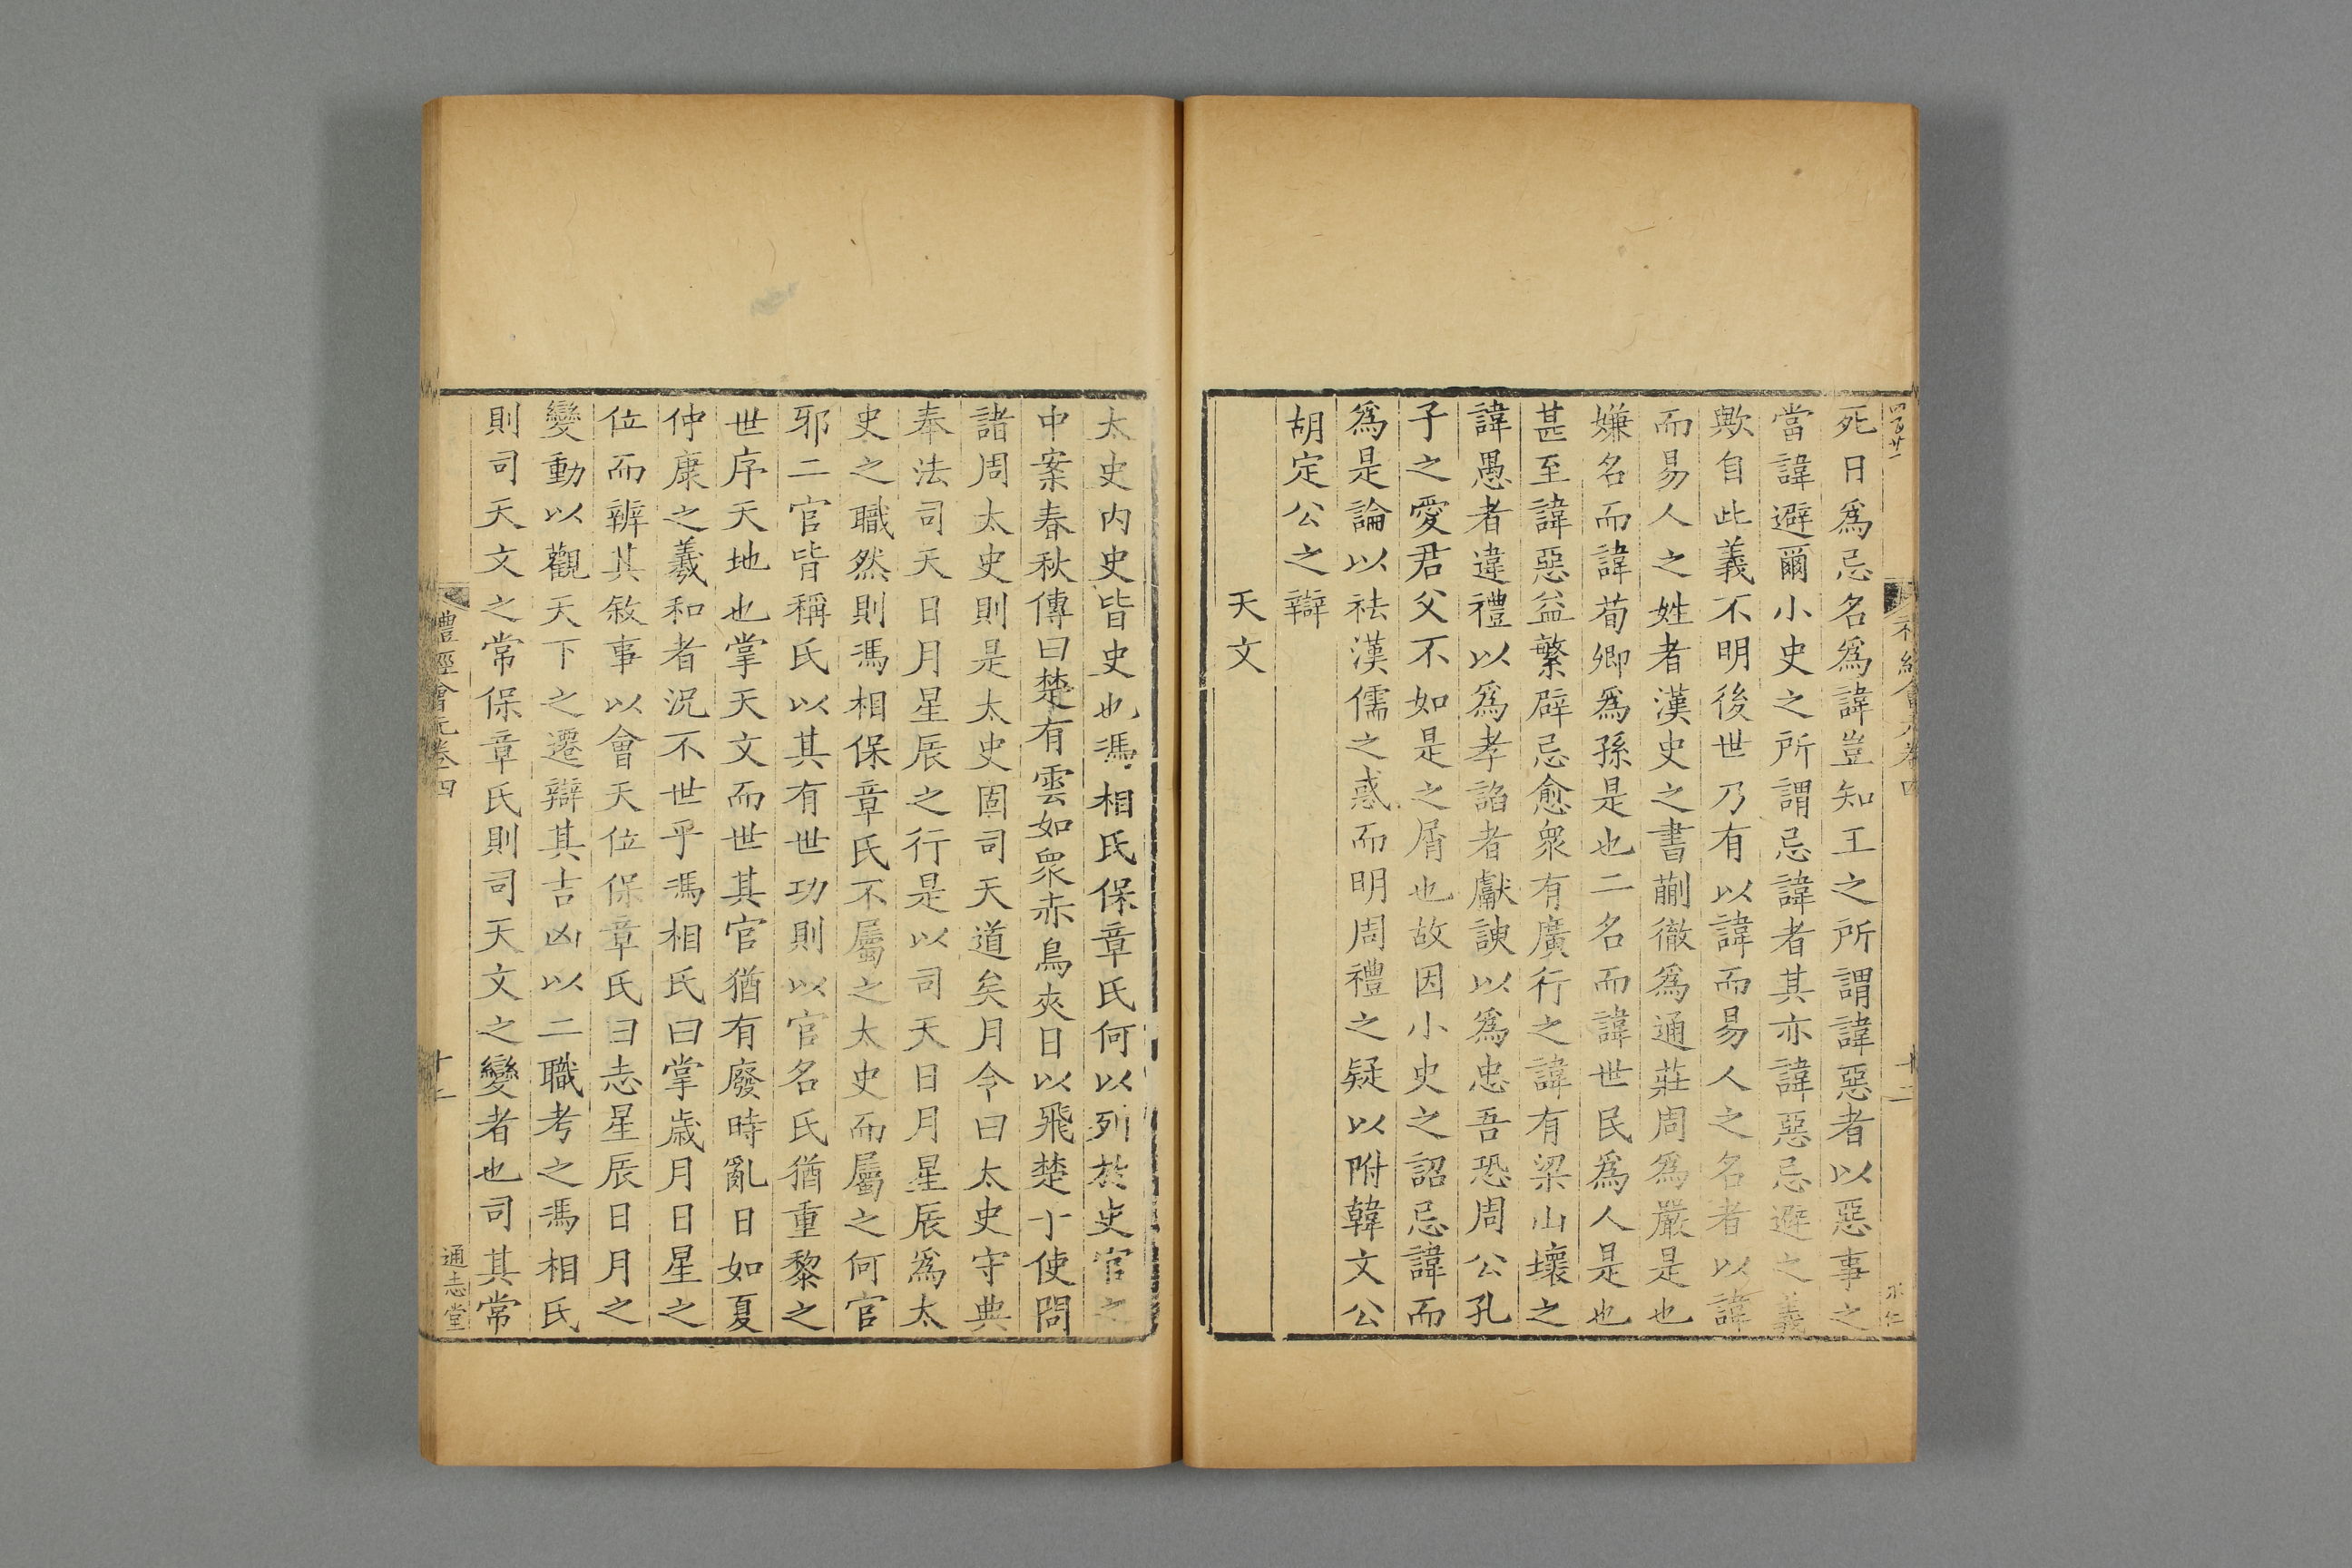 死日爲忌名爲諱豈知王之所謂諱惡者以惡事之
當諱避爾小史之所謂忌諱者其亦諱惡忌避之義
歟自此義不明後世乃有以諱而易人之名者以諱
而易人之姓者漢史之書蒯徹爲通莊周爲嚴是也
嫌名而諱荀卿爲孫是也二名而諱世民爲人是也
甚至諱惡益繁辟忌愈衆有廣行之諱有梁山壞之
諱愚者違禮以爲孝諂者獻諛以爲忠吾恐周公孔
子之愛君父不如是之屑也故因小史之詔忌諱而
爲是論以祛漢儒之惑而明周禮之疑以附韓文公
胡定公之辯
天文
太史内史皆史也馮相氏保章氏何以列於史官之
中案春秋傳曰楚有雲如衆赤鳥夾日以飛楚子使問
諸周太史則是太史固司天道矣月令曰太史守典
奉法司天日月星辰之行是以司天日月星辰爲太
史之職然則馮相保章氏不屬之太史而屬之何官
邪二官皆稱氏以其有世功則以官名氏猶重黎之
世序天地也掌天文而世其官猶有廢時亂日如夏
仲康之羲和者況不世乎馮相氏曰掌歲月日星之
位而辨其敘事以會天位保章氏曰志星辰日月之
變動以觀天下之遷辯其吉凶以二職考之馮相氏
則司天文之常保章氏則司天文之變者也司其常
禮經會元卷四
十二
通志堂